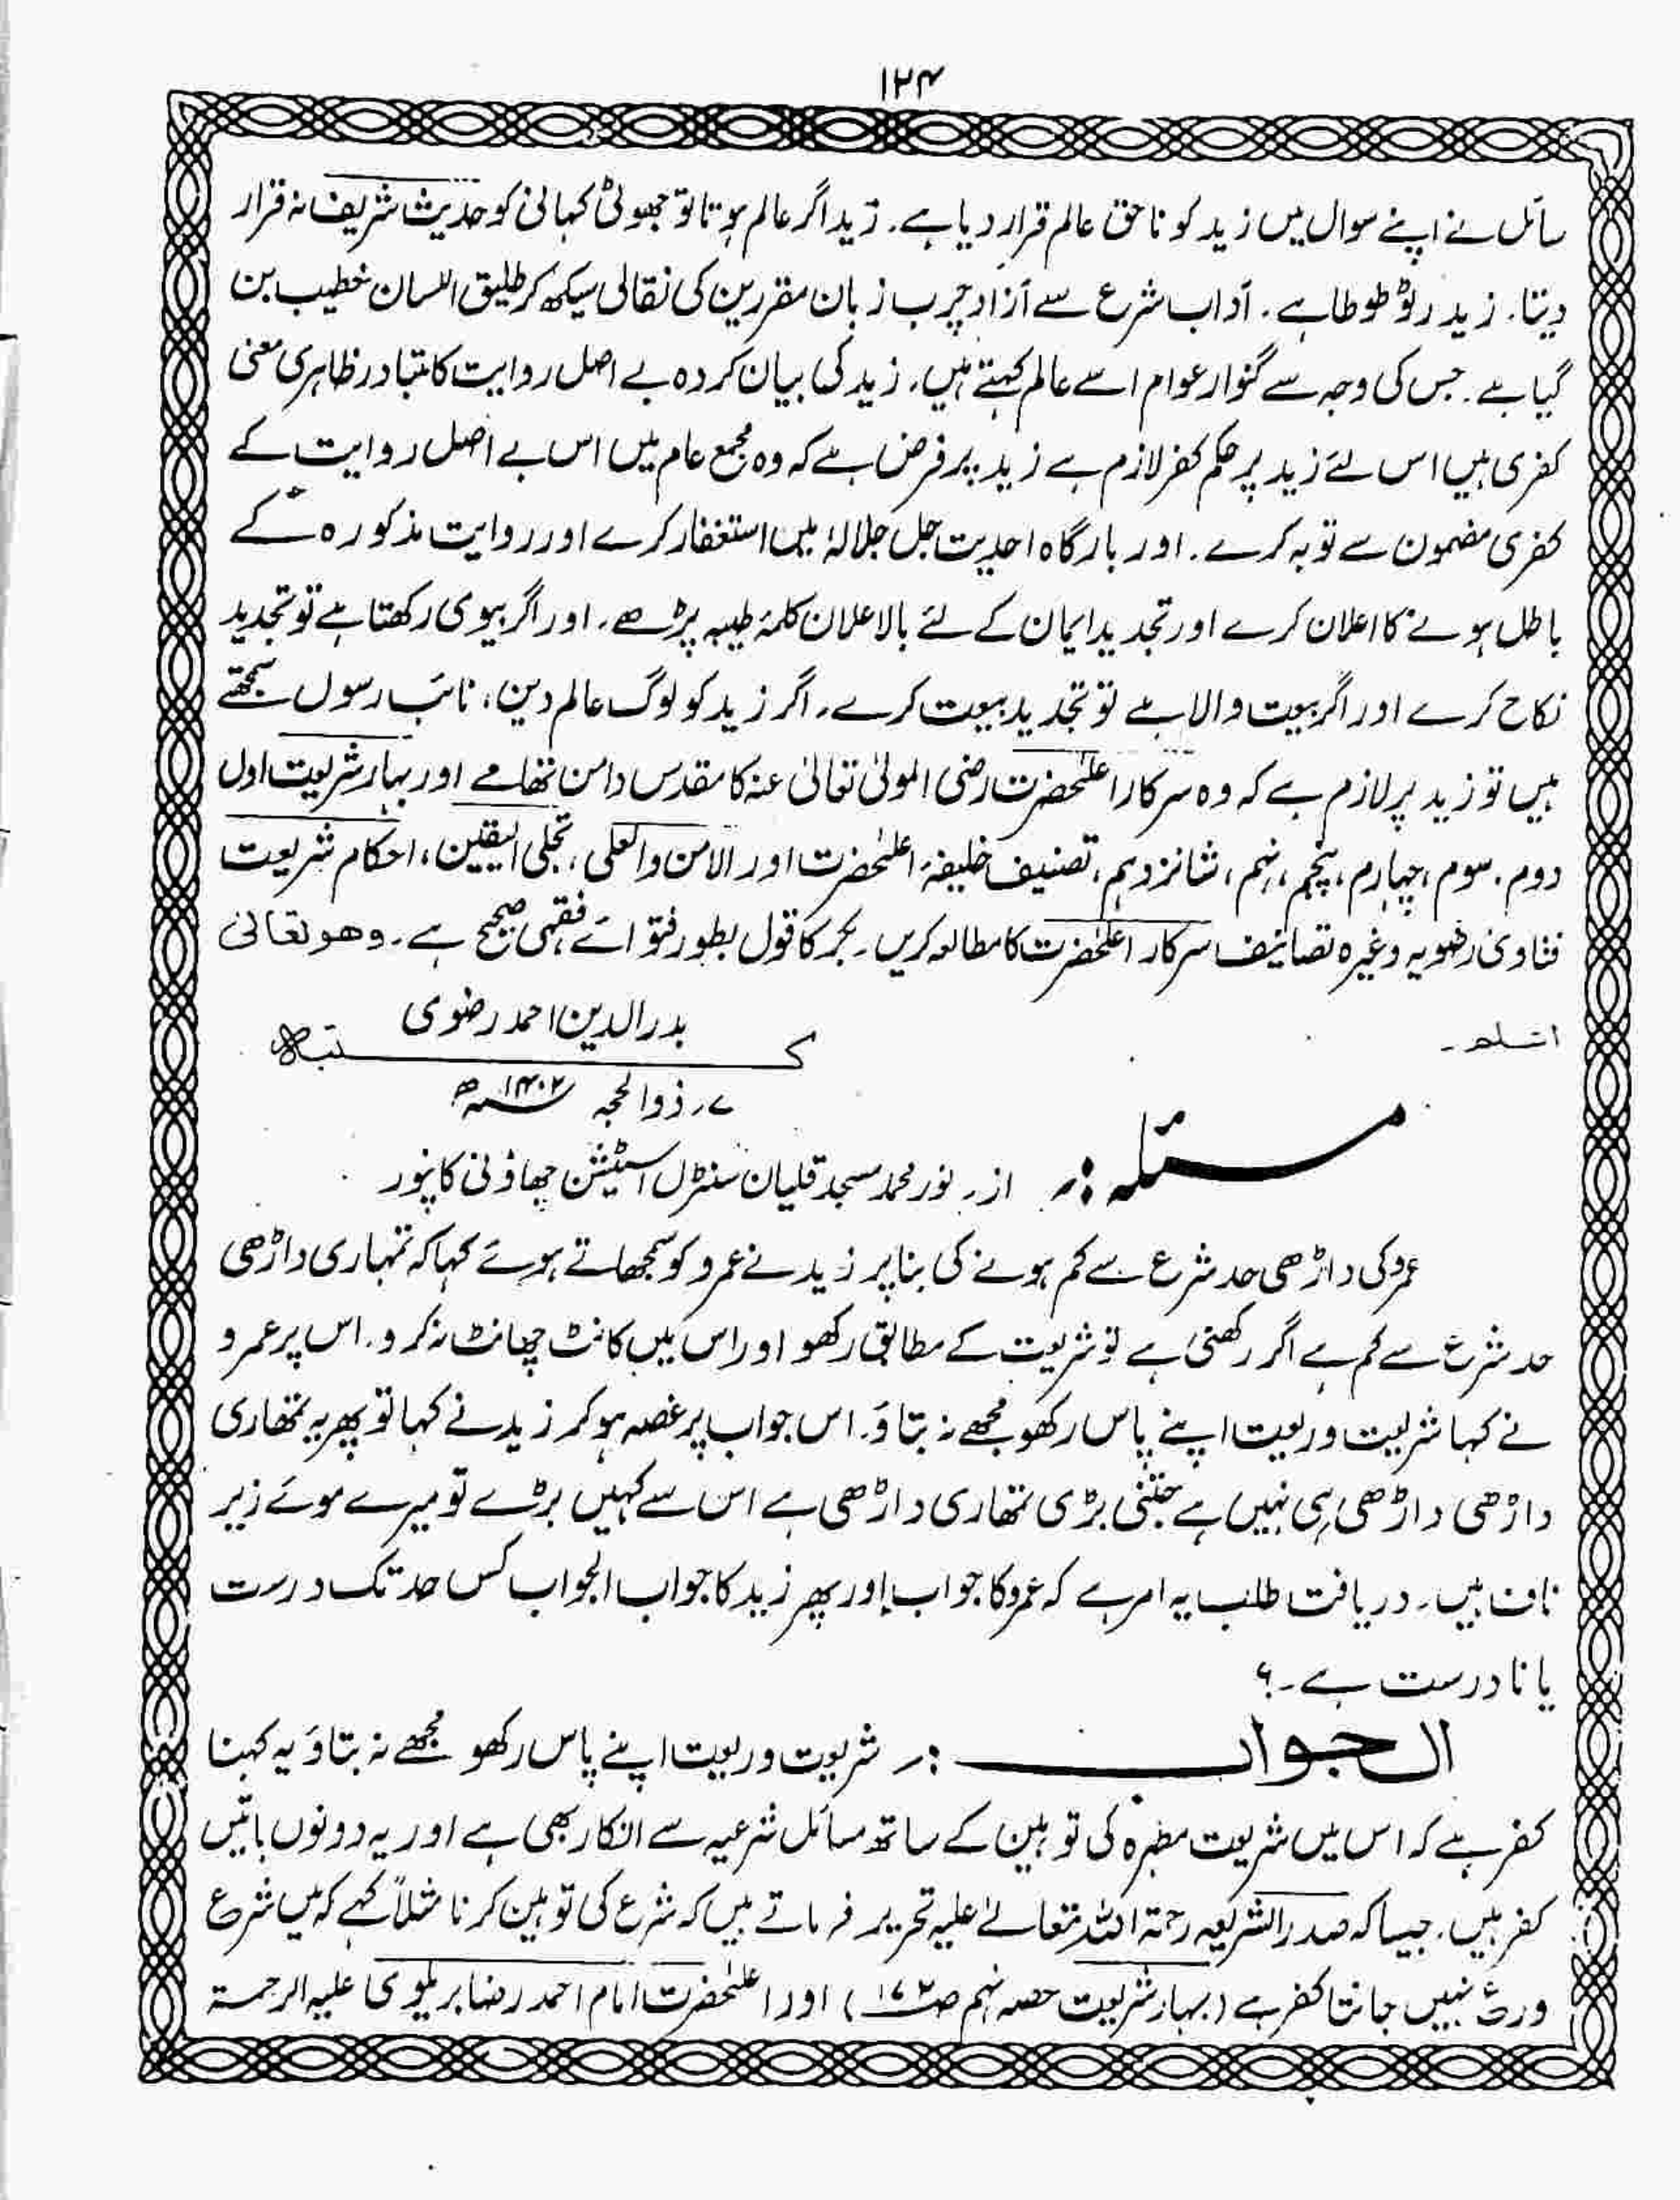 ۱۲۴
سائل نے اپنے سوال میں زید کو ناحق عالم قرار دیا ہے۔ زید اگر عالم ہوتا تو جھوٹی کہانی کو حدیث شریف نہ قرار
دیتا۔ زید رٹو طوطا ہے۔ آداب شرع سے آزاد چرب زبان مقررین کی نقالی سیکھ کر طلیق اللسان خطیب بن
گیا ہے۔ جس کی وجہ سے گنوار عوام اسے عالم کہتے ہیں۔ زید کی بیان کردہ بے اصل روایت کا متبادر ظاہری معنی
کفری ہیں اس لئے زید پر حکم کفر لازم ہے زید پر فرض ہے کہ وہ مجمع عام میں اس بے اصل روایت کے
کفری مضمون سے توبہ کرے۔ اور بارگاہ احدیت جل جلالہٗ میں استغفار کرے اور روایت مذکورہ کے
باطل ہونے کا اعلان کرے اور تجدید ایمان کے لئے بالاعلان کلمۂ طیبہ پڑھے۔ اور اگر بیوی رکھتا ہے تو تجدید
نکاح کرے اور اگر بیعت والا ہے تو تجدید بیعت کرے۔ اگر زید کو لوگ عالم دین، نائب رسول سمجھتے
ہیں تو زید پر لازم ہے کہ وہ سرکار اعلیٰحضرت رضی المولیٰ تعالیٰ عنہ کا مقدس دامن تھامے اور بہار شریعت اول
دوم، سوم، چہارم، پنجم، نہم، شانزدہم، تصنیف خلیفۂ اعلیٰحضرت اور الامن والعلی، تجلی الیقین، احکام شریعت
فتاویٰ رضویہ وغیرہ تصانیف سرکار اعلیٰحضرت کا مطالعہ کریں۔ بکر کا قول بطور فتوائے فقہی صحیح ہے۔ وھو تعالیٰ
اعلم۔
بدر الدین احمد رضوی
کتبہ
۷؍ ذوالحجہ ۱۴۰۲ھ
مسئلہ:۔ از۔ نور محمد مسجد قلیان سنٹرل اسٹیشن چھاؤنی کانپور
عمرو کی داڑھی حد شرع سے کم ہونے کی بنا پر زید نے عمرو کو سمجھاتے ہوئے کہا کہ تمہاری داڑھی
حد شرع سے کم ہے اگر رکھنی ہے تو شریعت کے مطابق رکھو اور اس میں کانٹ چھانٹ نہ کرو۔ اس پر عمرو
نے کہا شریعت وریعت اپنے پاس رکھو مجھے نہ بتاؤ۔ اس جواب پر غصہ ہو کر زید نے کہا تو پھر یہ تمھاری
داڑھی داڑھی ہی نہیں ہے جتنی بڑی تمھاری داڑھی ہے اس سے کہیں بڑے تو میرے موئے زیر
ناف ہیں۔ دریافت طلب یہ امر ہے کہ عمرو کا جواب اور پھر زید کا جواب الجواب کس حد تک درست
یا نادرست ہے۔؟
الجواب :۔ شریعت وریعت اپنے پاس رکھو مجھے نہ بتاؤ یہ کہنا
کفر ہے کہ اس میں شریعت مطہرہ کی توہین کے ساتھ مسائل شرعیہ سے انکار بھی ہے اور یہ دونوں باتیں
کفر ہیں۔ جیسا کہ صدرالشریعہ رحمۃ اللہ تعالےٰ علیہ تحریر فرماتے ہیں کہ شرع کی توہین کرنا مثلاً کہے کہ میں شرع
ورع نہیں جانتا کفر ہے (بہار شریعت حصہ نہم ص۱۷۲) اور اعلیٰحضرت امام احمد رضا بریلوی علیہ الرحمۃ